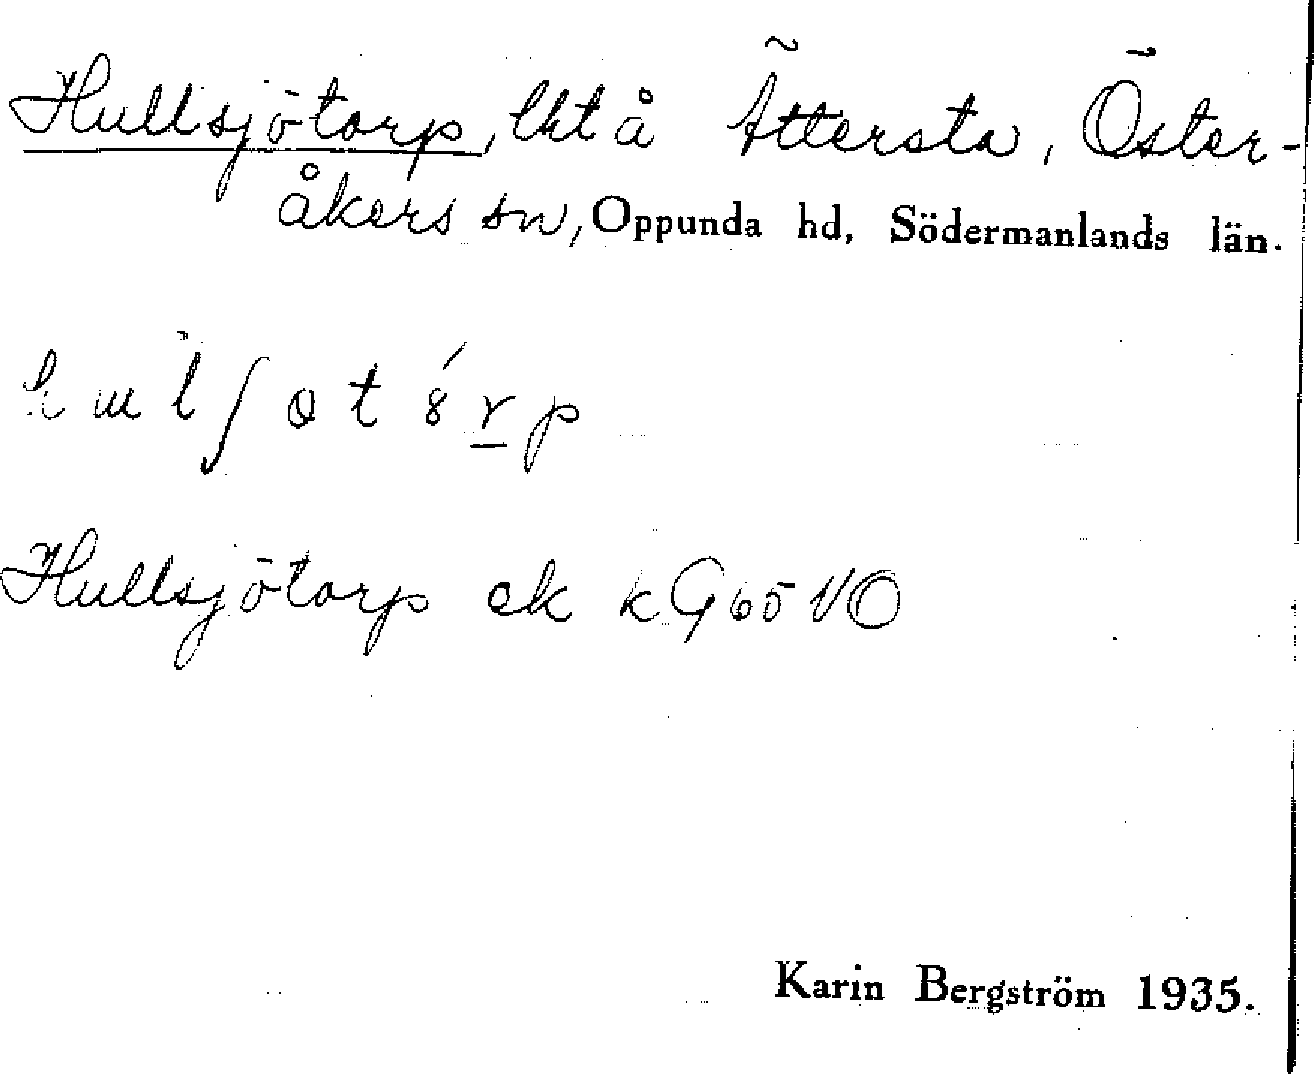 Hullsjötorp, lht å Ättersta, Öster-
åkers sn, Oppunda hd, Södermanlands län.
Hullsjötorp ek kG65 VO
Karin Bergström 1935.